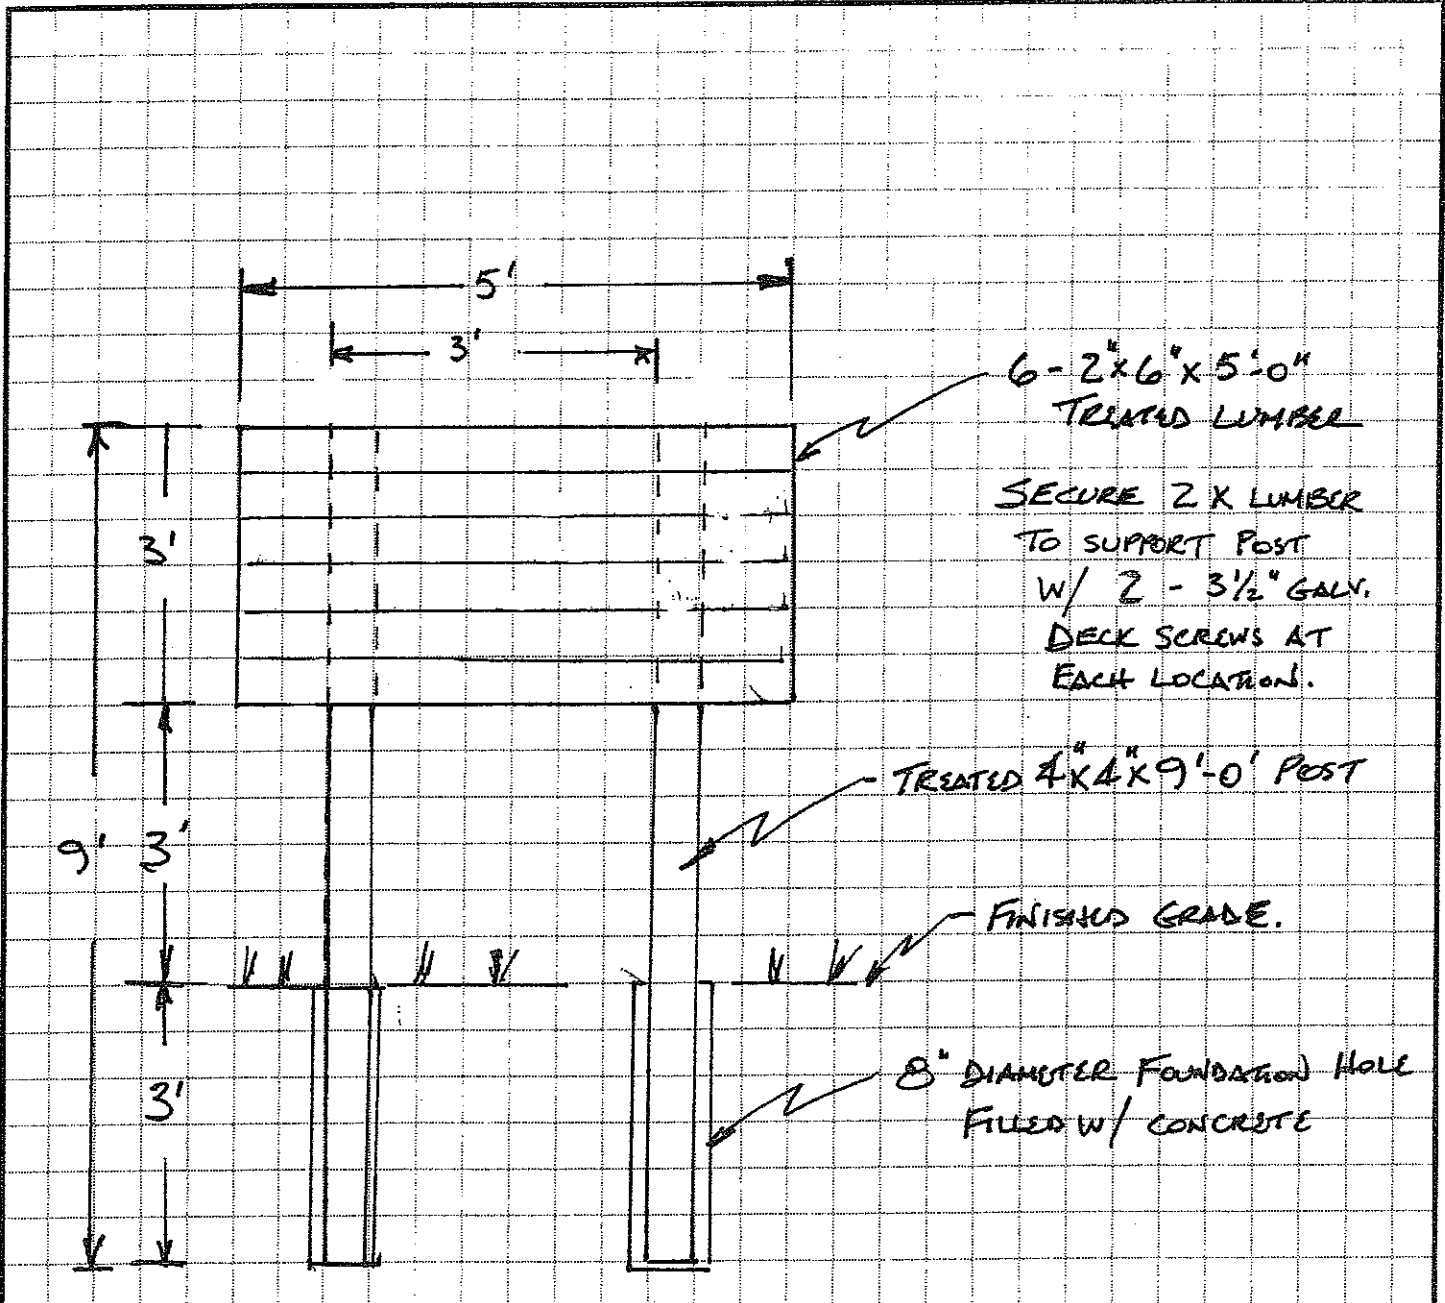 5'
3'
6 - 2" x 6" x 5'-0"
TREATED LUMBER
SECURE 2 X LUMBER
TO SUPPORT POST
W/ 2 - 3 1/2" GALV.
DECK SCREWS AT
EACH LOCATION.
3'
TREATED 4" x 4" x 9'-0' POST
9' 3'
FINISHED GRADE.
3'
8" DIAMETER FOUNDATION HOLE
FILLED W/ CONCRETE